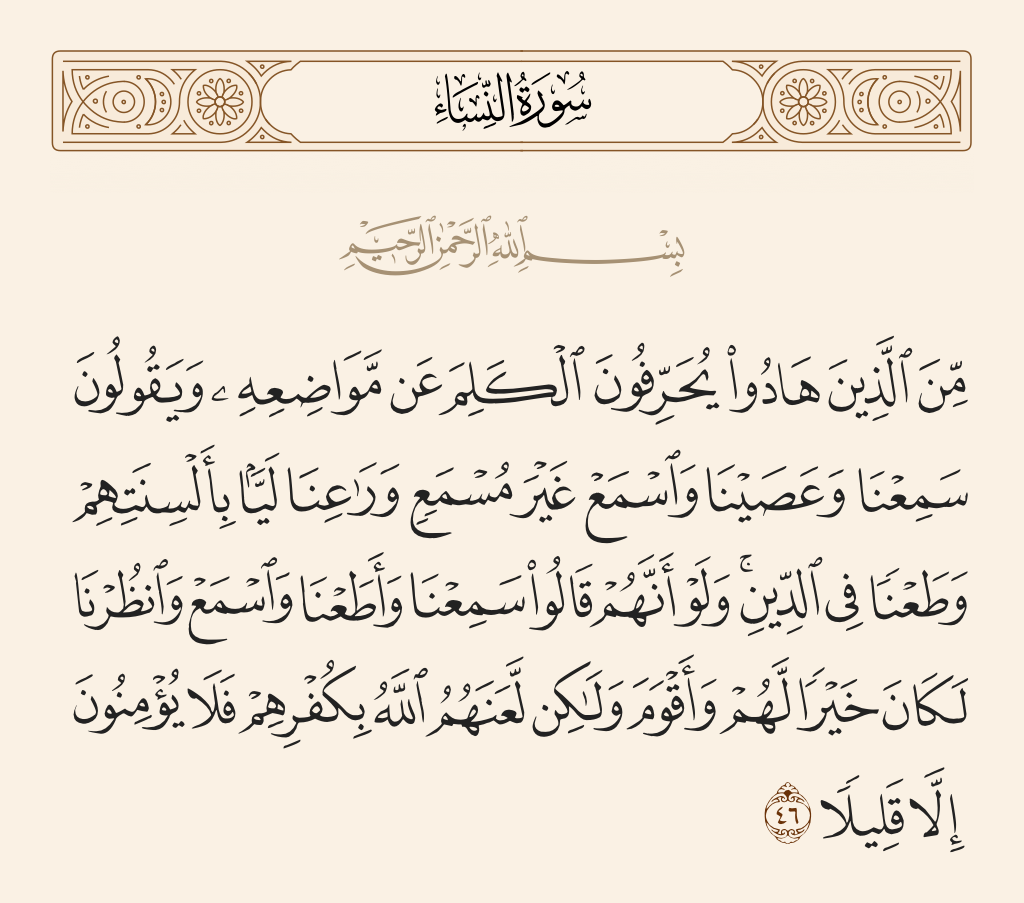 سُورَةُ النِّسَاءِ
بِسْمِ ٱللَّهِ ٱلرَّحْمَٰنِ ٱلرَّحِيمِ
مِّنَ ٱلَّذِينَ هَادُوا۟ يُحَرِّفُونَ ٱلْكَلِمَ عَن مَّوَاضِعِهِۦ وَيَقُولُونَ
سَمِعْنَا وَعَصَيْنَا وَٱسْمَعْ غَيْرَ مُسْمَعٍ وَرَٰعِنَا لَيًّۢا بِأَلْسِنَتِهِمْ
وَطَعْنًا فِى ٱلدِّينِ ۚ وَلَوْ أَنَّهُمْ قَالُوا۟ سَمِعْنَا وَأَطَعْنَا وَٱسْمَعْ وَٱنظُرْنَا
لَكَانَ خَيْرًا لَّهُمْ وَأَقْوَمَ وَلَٰكِن لَّعَنَهُمُ ٱللَّهُ بِكُفْرِهِمْ فَلَا يُؤْمِنُونَ
إِلَّا قَلِيلًا ٤٦